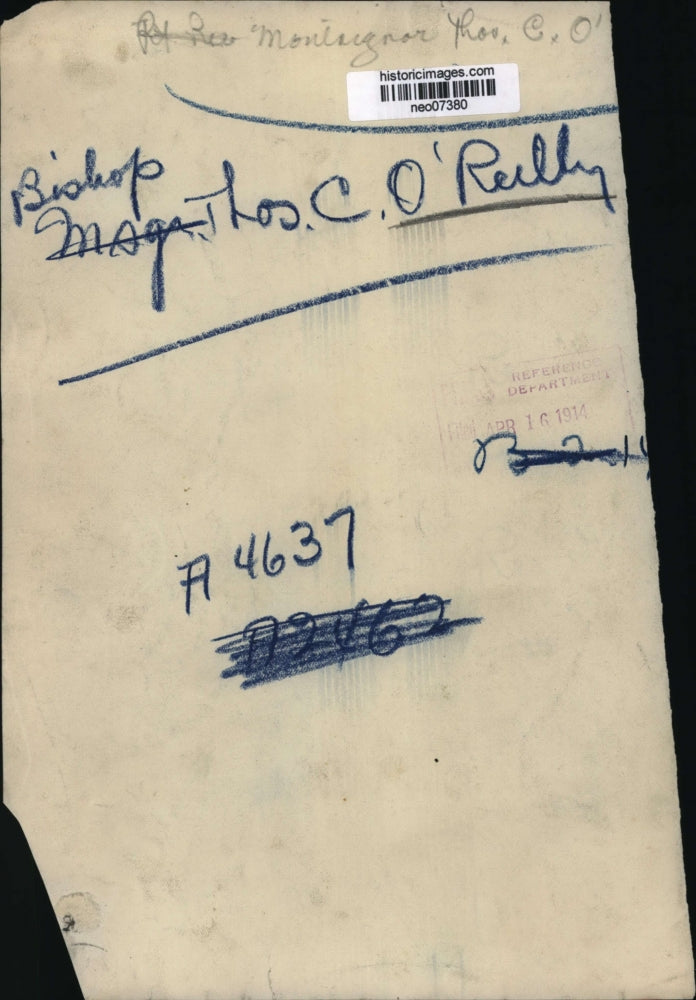 Rt Rev Monsignor Thos. C. O'
historicimages.com
neo07380
Bishop
Msgr. Thos. C. O'Reilly
REFERENCE
DEPARTMENT
APR 16 1914
A 4637
A2462